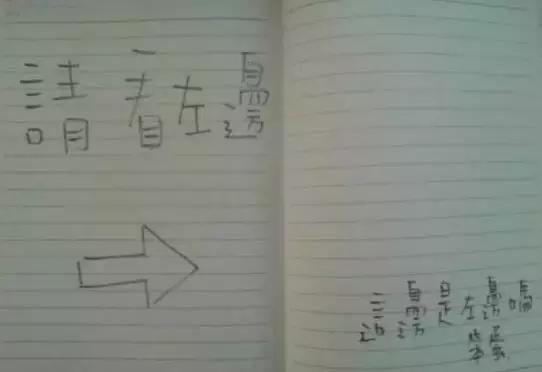 請看左邊
這邊是左邊嗎
笨蛋